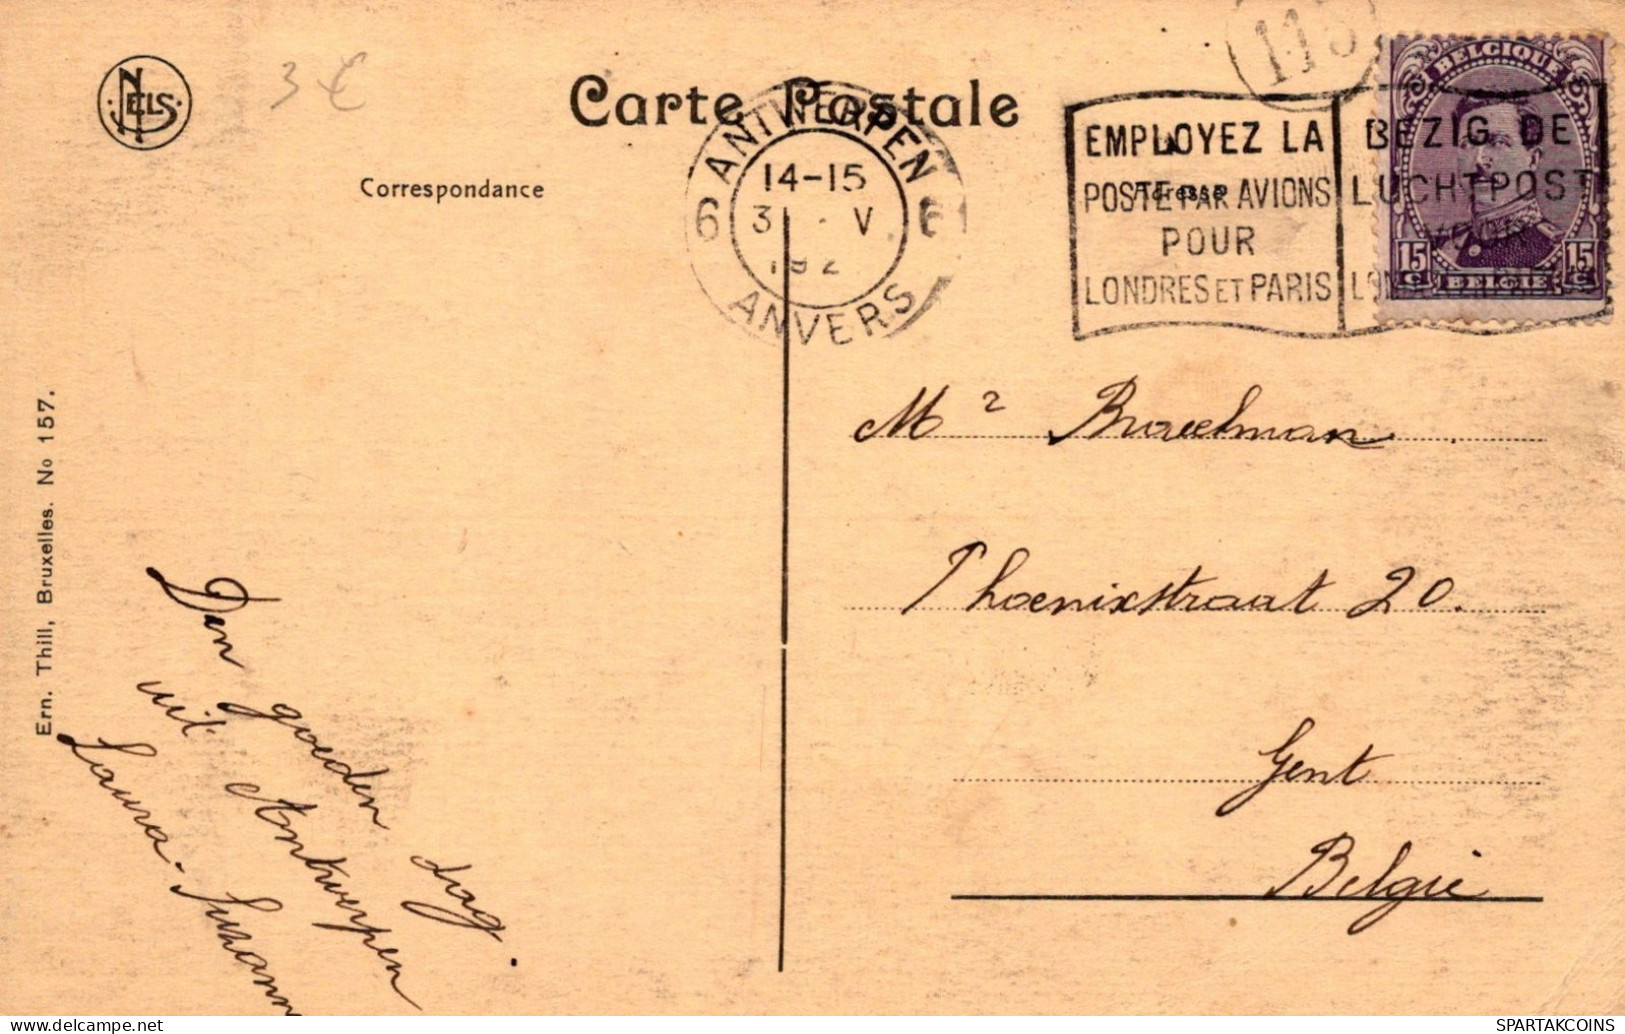 NELS
3 €
Carte Postale
Correspondance
Adresse
ANTWERPEN
6 6
14-15
3 V
192
ANVERS
EMPLOYEZ LA
POSTE PAR AVIONS
POUR
LONDRES ET PARIS
BEZIG DE
LUCHTPOST
BELGIQUE
15 C 15 C
BELGIË
Mr Braeckman
Phoenixstraat 20.
Gent
België
Den goeden dag.
uit Antwerpen
Laura.
Ern. Thill, Bruxelles. No 157.
SPARTAKCOINS